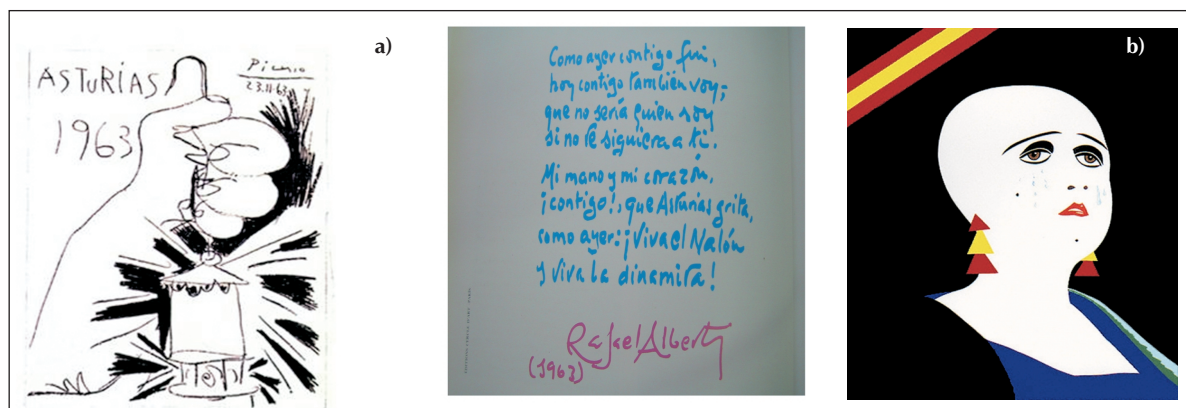 a)
ASTURIAS
Picasso
23.11.63
1963
Como ayer contigo fui,
hoy contigo también voy;
que no sería quien soy
si no te siguiera a ti.
Mi mano y mi corazón,
¡contigo!, que Asturias grita,
como ayer: ¡Viva el Nalón
y viva la dinamita!
Rafael Alberti
(1963)
b)